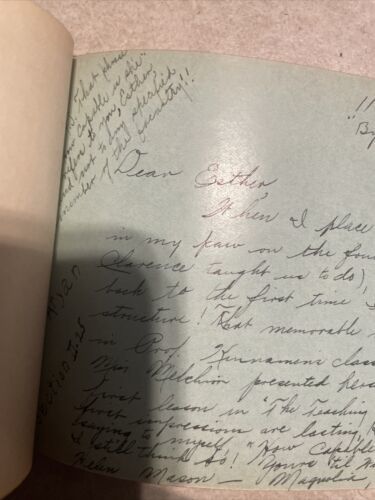 That phrase
Capable is she"
to you, Esther
and not to any specified
member of the faculty!!
"!!
"By
Dear Esther,
When I place
in my paw on the fou
Clarence taught us to do),
back to the first time I
structure! That memorable
in Prof. Kinnamens class
Miss Melchior presented hers
first lesson in "The Teaching
first impressions are lasting,
saying to myself "How Capable
I still think so! Yours 'til
Mason — Magnolia